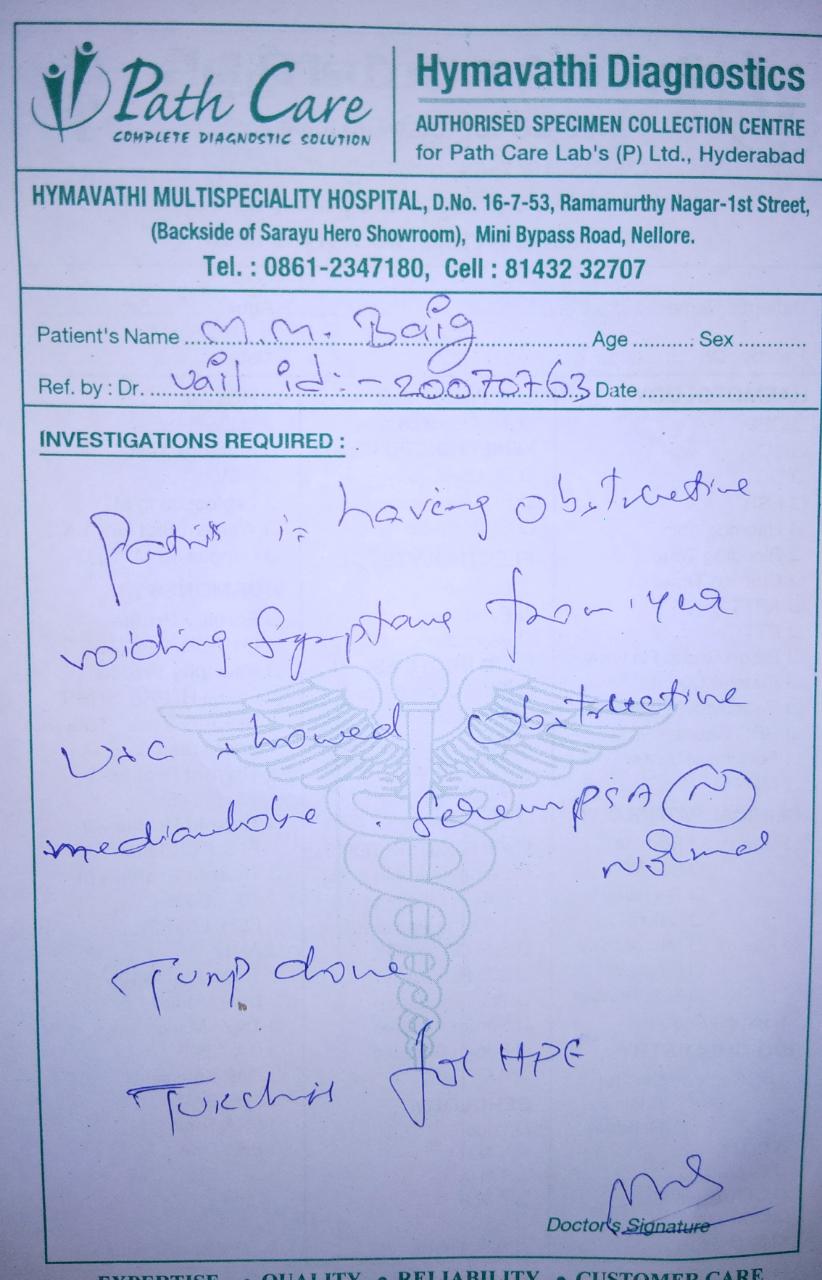 Path Care
COMPLETE DIAGNOSTIC SOLUTION
Hymavathi Diagnostics
AUTHORISED SPECIMEN COLLECTION CENTRE
for Path Care Lab's (P) Ltd., Hyderabad
HYMAVATHI MULTISPECIALITY HOSPITAL, D.No. 16-7-53, Ramamurthy Nagar-1st Street,
(Backside of Sarayu Hero Showroom), Mini Bypass Road, Nellore.
Tel. : 0861-2347180, Cell : 81432 32707
Patient's Name M.M. Baig Age Sex
Ref. by : Dr. vail id:- 20070763 Date
INVESTIGATIONS REQUIRED :
Patient is having Obstructive
voiding Symptoms from 1 year
showed Obstructive
median lobe. Serum PSA (N)
normal
TURP done
TUR chips for HPE
Doctor's Signature
EXPERTISE • QUALITY • RELIABILITY • CUSTOMER CARE